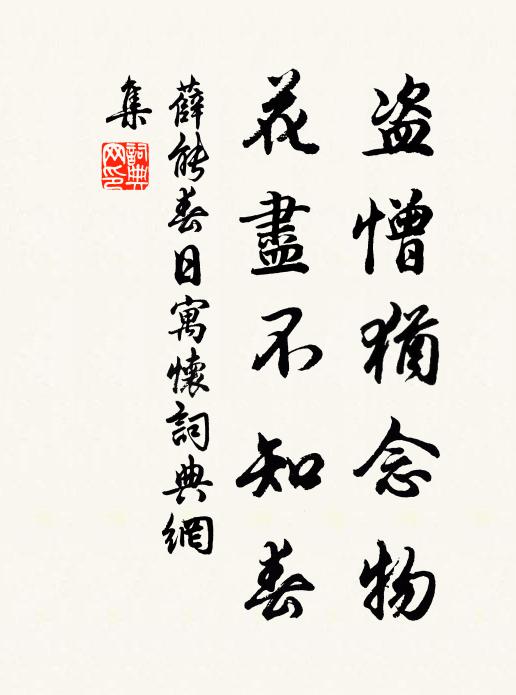 盗憎猶念物
花盡不知春
薛能春日寓懷詞典網
集
詞典
网印